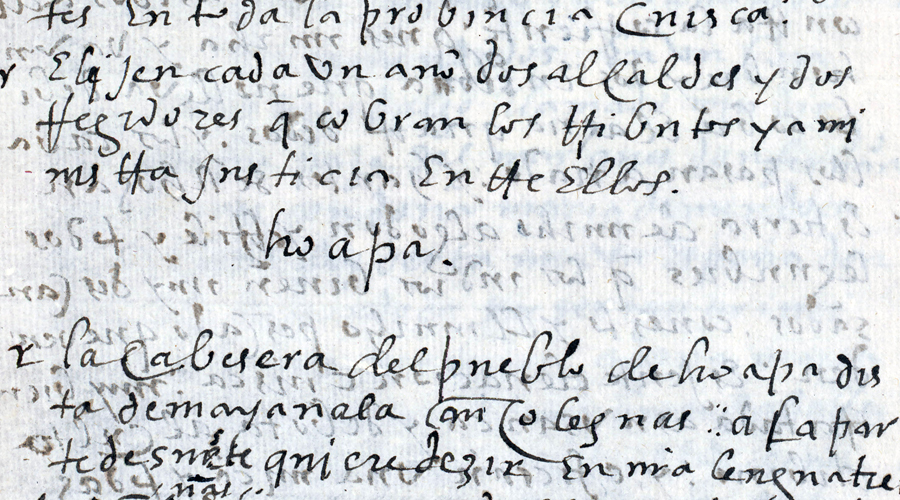 tes En toda la provincia Cuisca.
Elijen cada Un año dos alcaldes y dos
Regidores q̄ cobran los tributos y ami
nistra Justicia Entre Ellos.
hoapa.
la Cabesera del pueblo de hoapa dis
ta de mayanala cinco leguas a la par
te des quiere dezir En nra lengua tie